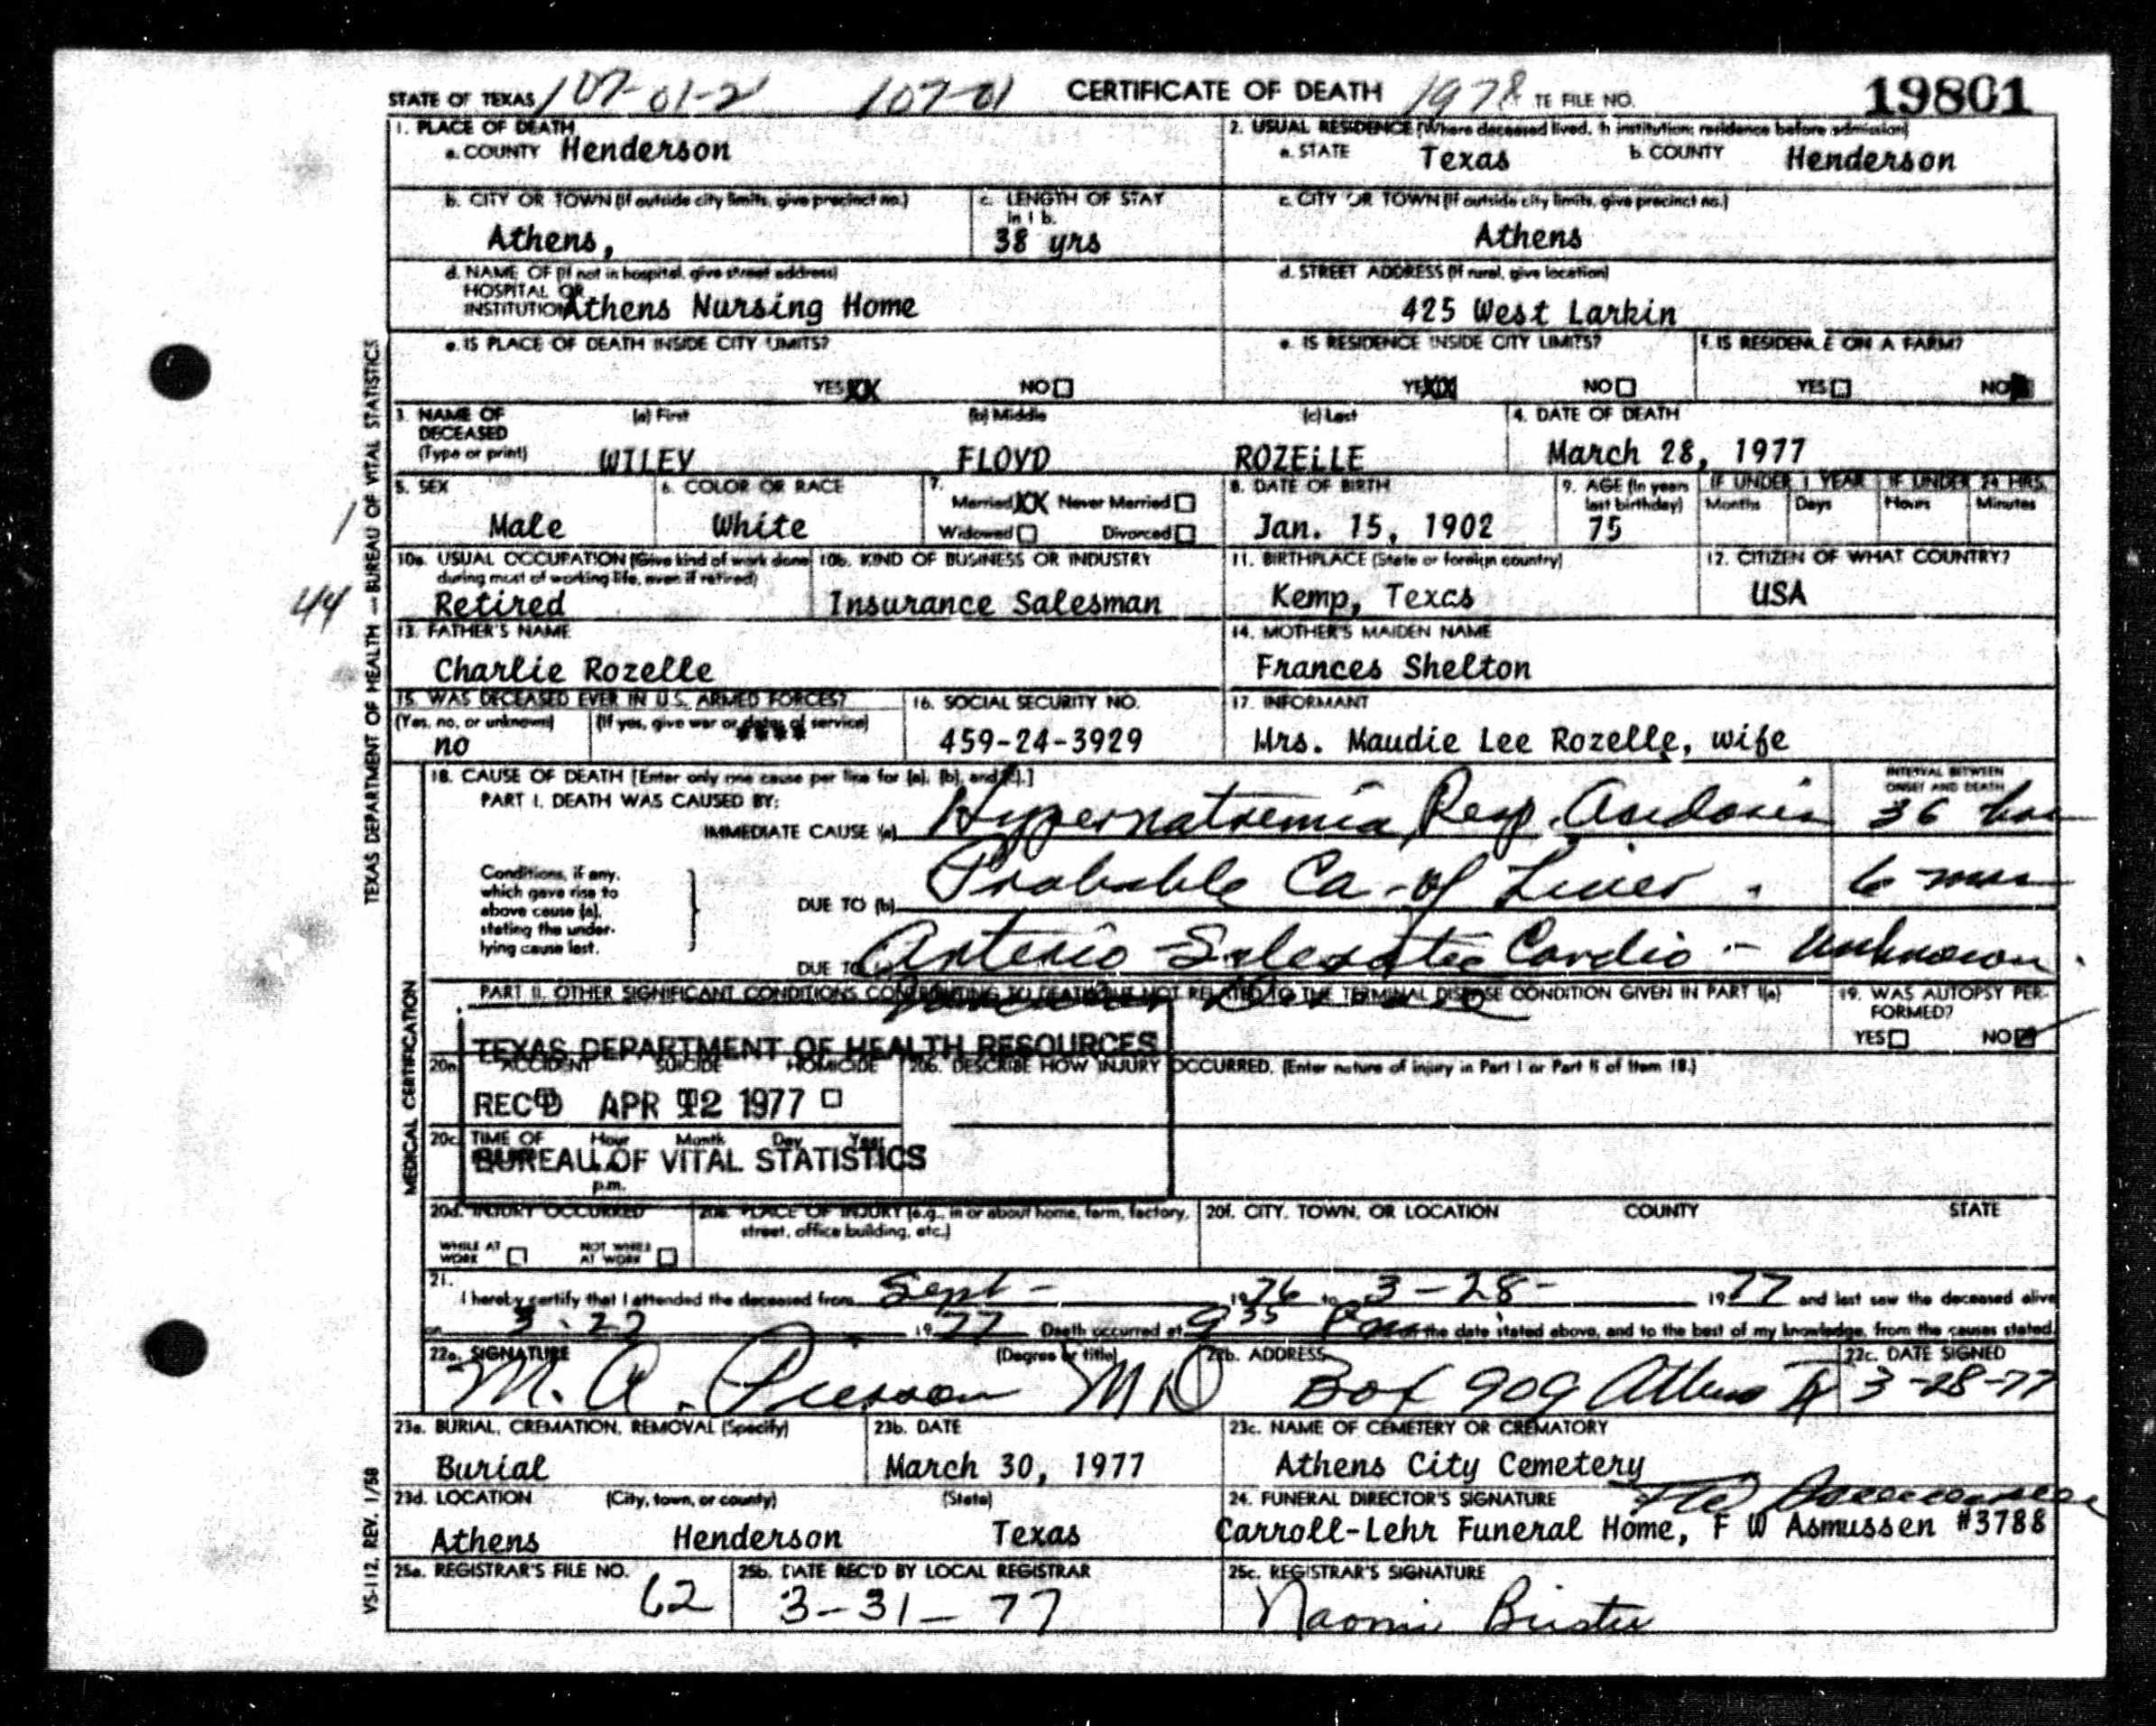 STATE OF TEXAS 107-01-2 107-01 CERTIFICATE OF DEATH 1978 TE FILE NO. 19801
1. PLACE OF DEATH
a. COUNTY Henderson
2. USUAL RESIDENCE (Where deceased lived. If institution: residence before admission)
a. STATE Texas b. COUNTY Henderson
b. CITY OR TOWN (If outside city limits, give precinct no.)
Athens,
c. LENGTH OF STAY in 1 b.
38 yrs
c. CITY OR TOWN (If outside city limits, give precinct no.)
Athens
d. NAME OF (If not in hospital, give street address)
HOSPITAL OR
INSTITUTION Athens Nursing Home
d. STREET ADDRESS (If rural, give location)
425 West Larkin
e. IS PLACE OF DEATH INSIDE CITY LIMITS?
YES XX NO
e. IS RESIDENCE INSIDE CITY LIMITS?
YES XX NO
f. IS RESIDENCE ON A FARM?
YES NO
3. NAME OF DECEASED (Type or print)
(a) First (b) Middle (c) Last
WILEY FLOYD ROZELLE
4. DATE OF DEATH
March 28, 1977
5. SEX
Male
6. COLOR OR RACE
White
7.
Married XX Never Married
Widowed Divorced
8. DATE OF BIRTH
Jan. 15, 1902
9. AGE (In years last birthday)
75
IF UNDER 1 YEAR IF UNDER 24 HRS.
Months Days Hours Minutes
1
44
10a. USUAL OCCUPATION (Give kind of work done during most of working life, even if retired)
Retired
10b. KIND OF BUSINESS OR INDUSTRY
Insurance Salesman
11. BIRTHPLACE (State or foreign country)
Kemp, Texas
12. CITIZEN OF WHAT COUNTRY?
USA
13. FATHER'S NAME
Charlie Rozelle
14. MOTHER'S MAIDEN NAME
Frances Shelton
15. WAS DECEASED EVER IN U.S. ARMED FORCES?
(Yes, no, or unknown) (If yes, give war or dates of service)
no
16. SOCIAL SECURITY NO.
459-24-3929
17. INFORMANT
Mrs. Maudie Lee Rozelle, wife
18. CAUSE OF DEATH [Enter only one cause per line for (a), (b), and (c).]
PART I. DEATH WAS CAUSED BY:
IMMEDIATE CAUSE (a) Hypernatremia Resp. Acidosis
INTERVAL BETWEEN ONSET AND DEATH
36 hrs
Conditions, if any, which gave rise to above cause (a), stating the underlying cause last.
DUE TO (b) Probable Ca-of Liver. 6 mos
DUE TO Arterio-Sclerotic Cardio - Unknown.
PART II. OTHER SIGNIFICANT CONDITIONS CONTRIBUTING TO DEATH BUT NOT RELATED TO THE TERMINAL DISEASE CONDITION GIVEN IN PART I(a)
19. WAS AUTOPSY PERFORMED?
YES NO
TEXAS DEPARTMENT OF HEALTH RESOURCES
REC'D APR 12 1977
BUREAU OF VITAL STATISTICS
20a. ACCIDENT SUICIDE HOMICIDE
20b. DESCRIBE HOW INJURY OCCURRED. (Enter nature of injury in Part I or Part II of Item 18.)
20c. TIME OF Hour Month Day Year
p.m.
20d. INJURY OCCURRED
WHILE AT WORK NOT WHILE AT WORK
20e. PLACE OF INJURY (e.g., in or about home, farm, factory, street, office building, etc.)
20f. CITY, TOWN, OR LOCATION COUNTY STATE
21.
I hereby certify that I attended the deceased from Sept - 1976 to 3-28- 1977 and last saw the deceased alive
on 3-27 1977 Death occurred at 9 35 Pm on the date stated above, and to the best of my knowledge, from the causes stated.
22a. SIGNATURE (Degree or title)
M. A. MD
22b. ADDRESS
Box 909 Athens Tx
22c. DATE SIGNED
3-28-77
23a. BURIAL, CREMATION, REMOVAL (Specify)
Burial
23b. DATE
March 30, 1977
23c. NAME OF CEMETERY OR CREMATORY
Athens City Cemetery
23d. LOCATION (City, town, or county) (State)
Athens Henderson Texas
24. FUNERAL DIRECTOR'S SIGNATURE
Carroll-Lehr Funeral Home, F W Asmussen #3788
25a. REGISTRAR'S FILE NO.
62
25b. DATE REC'D BY LOCAL REGISTRAR
3-31-77
25c. REGISTRAR'S SIGNATURE
Naomi
TEXAS DEPARTMENT OF HEALTH — BUREAU OF VITAL STATISTICS
MEDICAL CERTIFICATION
VS-112. REV. 1/58